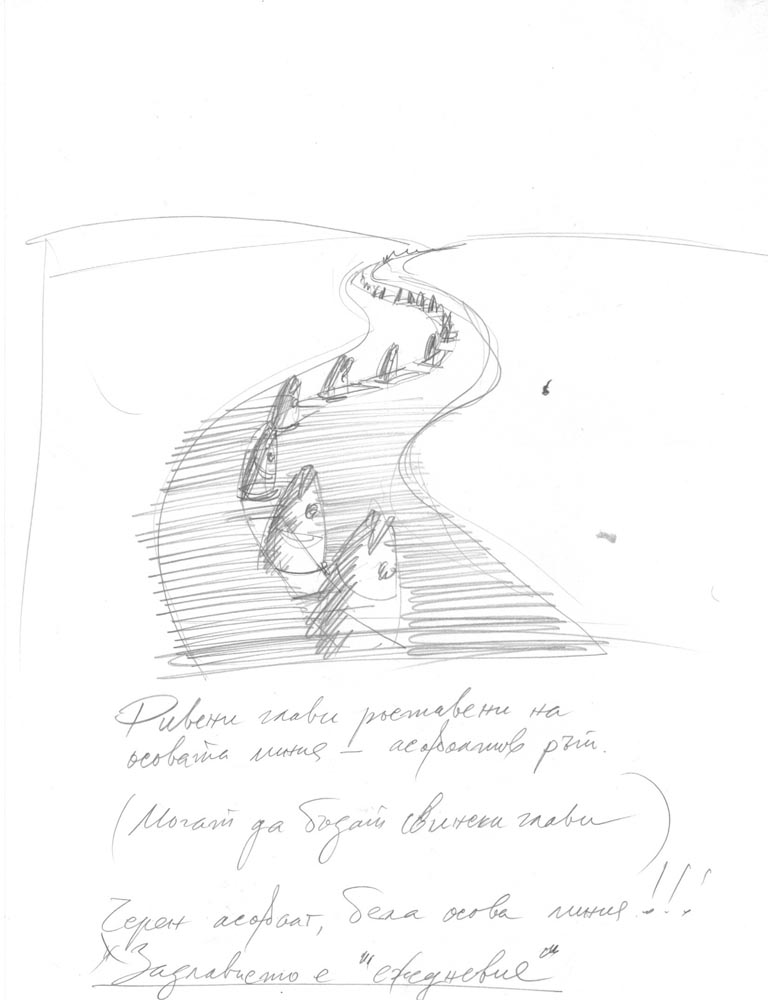 Рибени глави поставени на
осовата линия – асфалтов път.
(Могат да бъдат Свински глави)
Черен асфалт, бела осова линия!!!
Заглавието е "ежедневие"